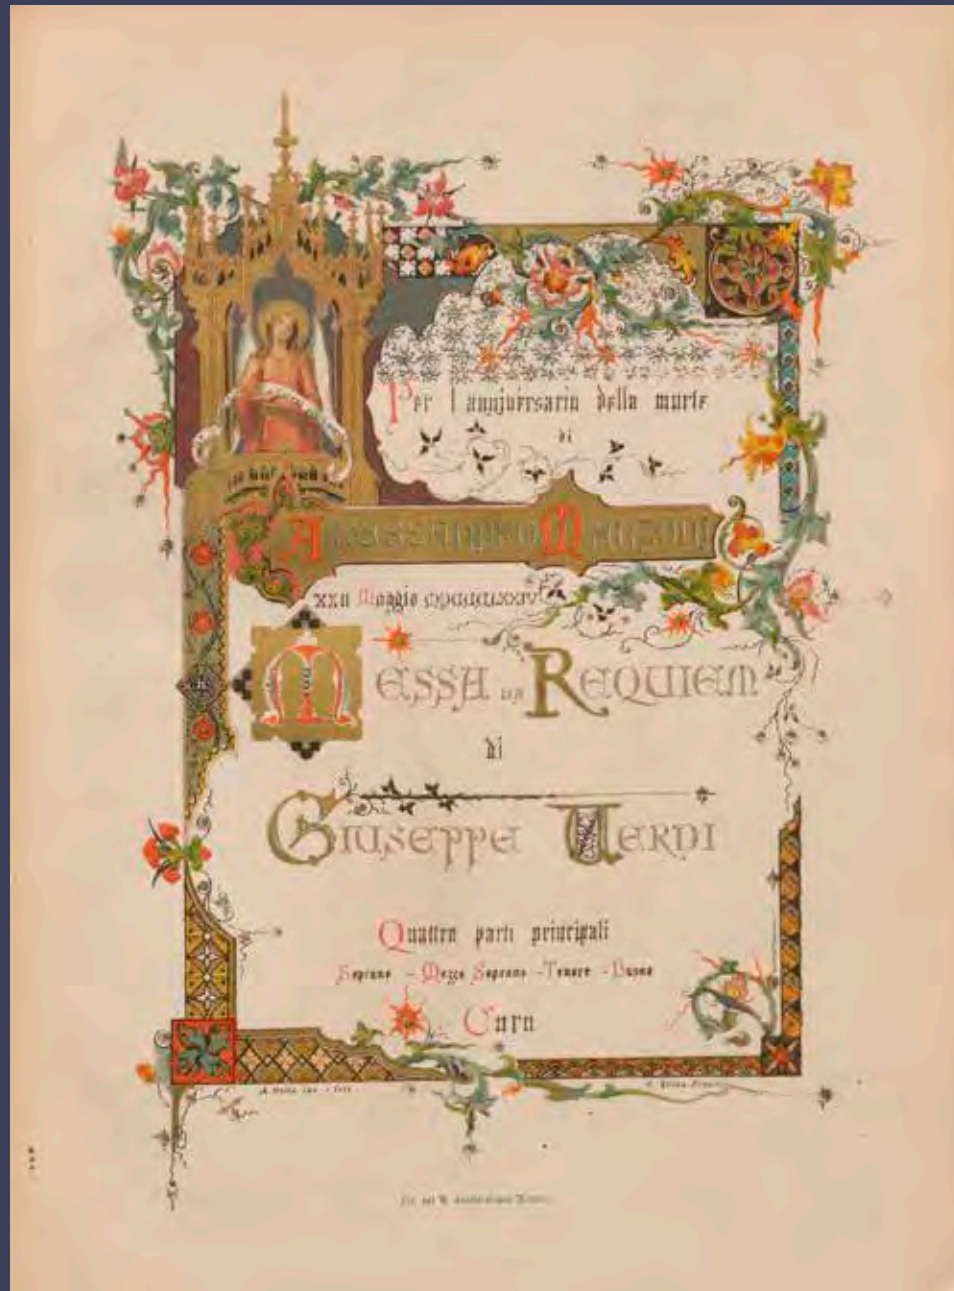 Per l anniversario della morte
di
Alessandro Manzoni
XXII Maggio MDCCCLXXIV
Messa da Requiem
di
Giuseppe Verdi
Quattro parti principali
Soprano - Mezzo Soprano - Tenore - Basso
Coro